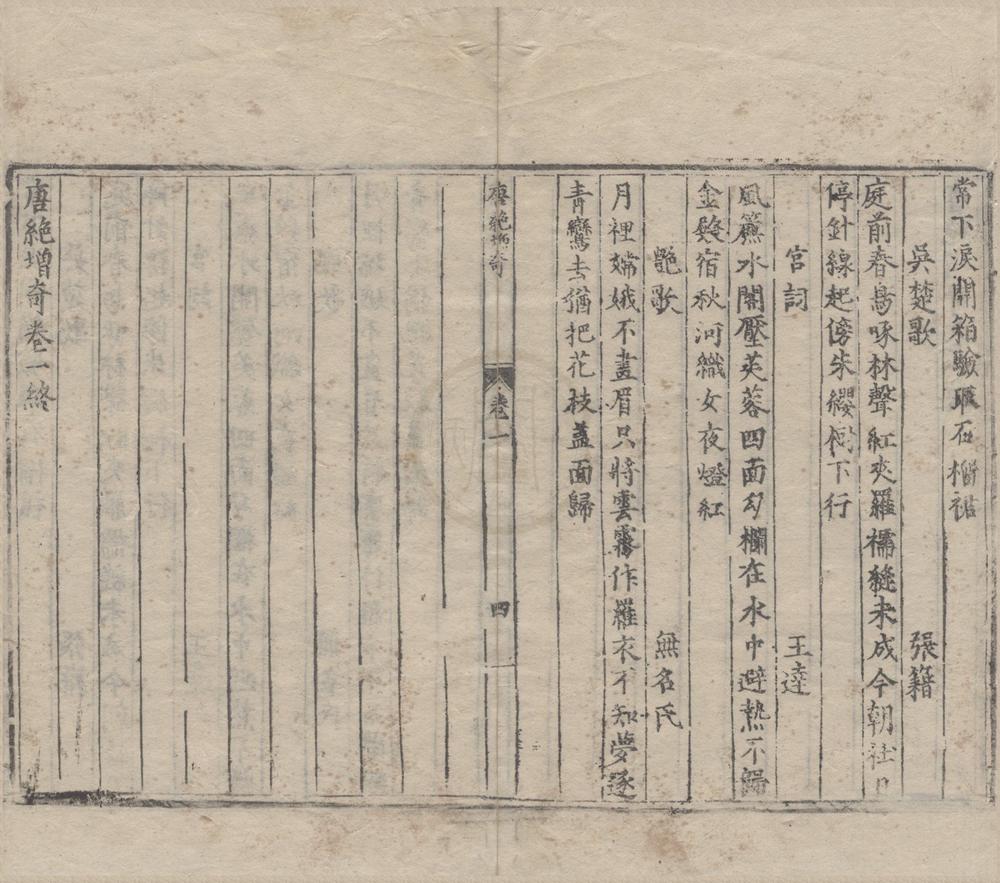 常下淚開箱驗取石榴裙
吳楚歌 張籍
庭前春鳥啄林聲紅夾羅襦縫未成今朝社日
停針線起傍朱櫻樹下行
宮詞 王建
風簾水閣壓芙蓉四面勾欄在水中避熱不歸
金殿宿秋河織女夜燈紅
艷歌 無名氏
月裡嫦娥不畫眉只將雲霧作羅衣不知夢逐
青鸞去猶把花枝蓋面歸
唐絕增奇 卷一 四
唐絕增奇卷一終